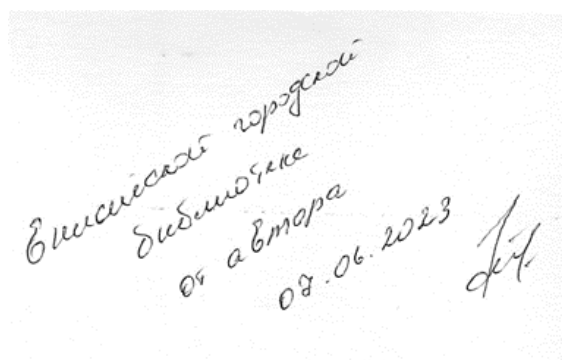 Енисейской городской
библиотеке
от автора
07.06.2023